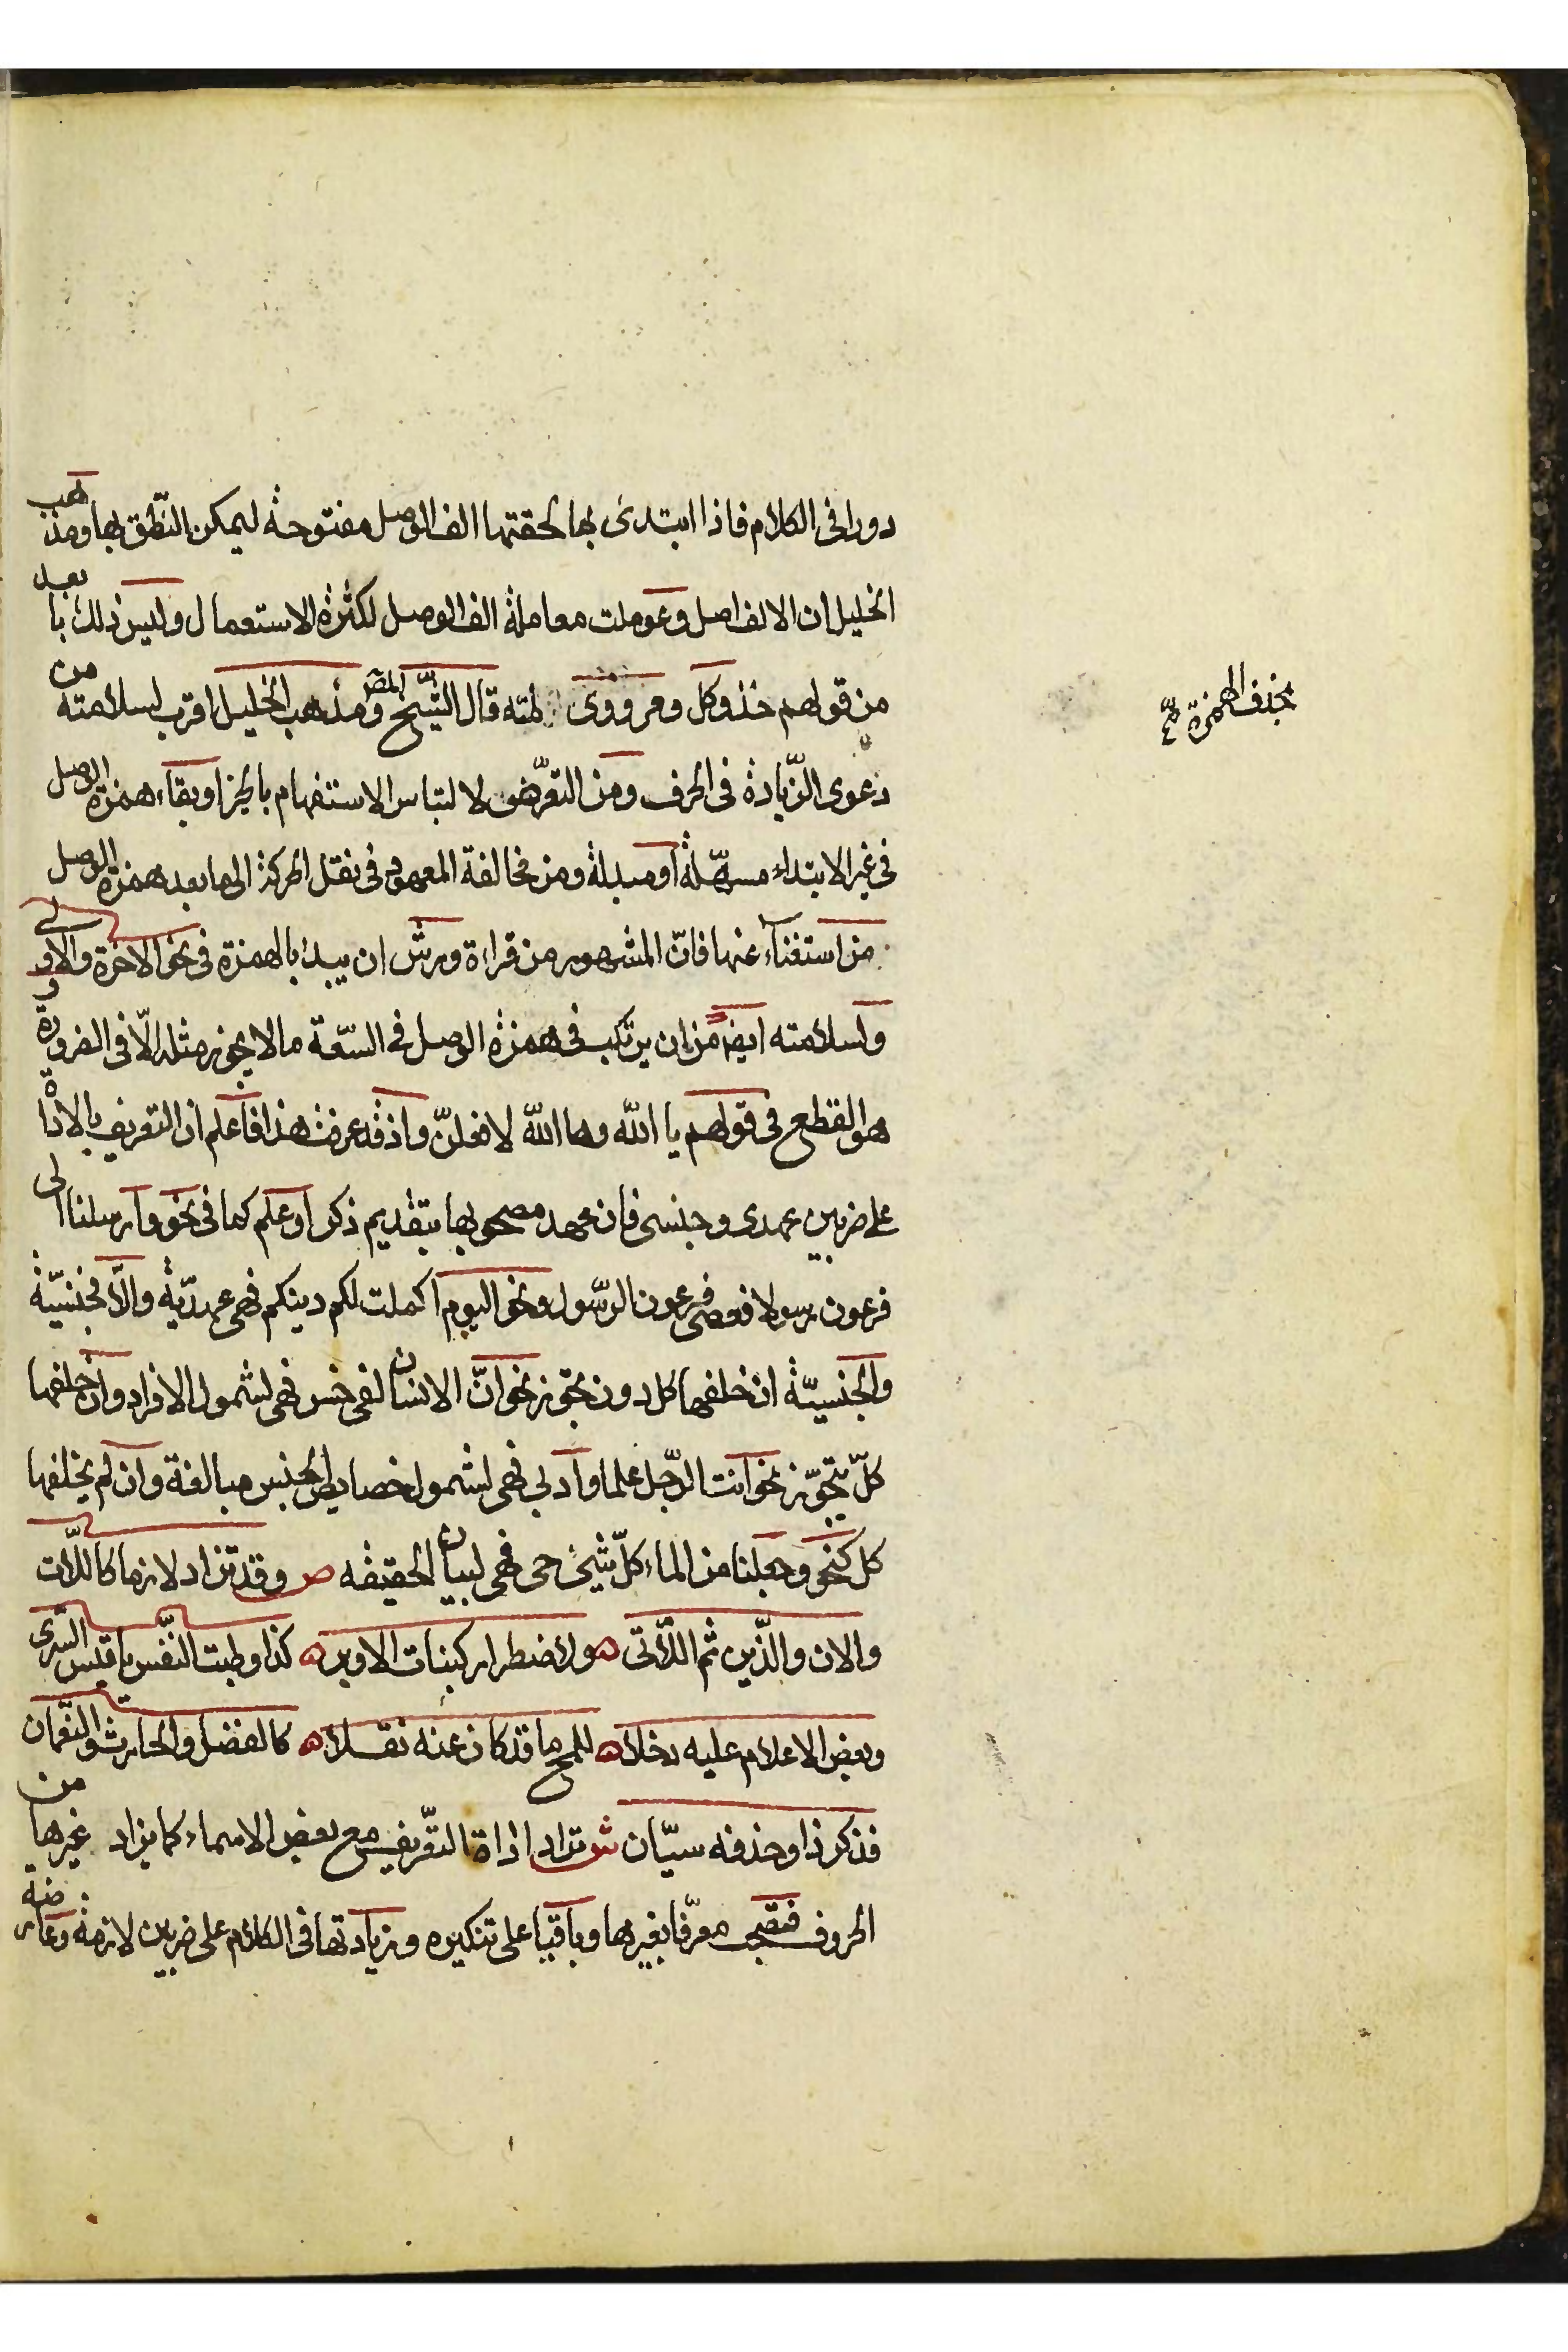 دورا فى الكلام فاذا ابتدئ بها لحقتها الف الوصل مفتوحة ليمكن النّطق بها ومذهب
الخليل ان الالف اصل وعوملت معاملة الف الوصل لكثرة الاستعمال وليس ذلك بابعد
من قولهم خذ وكل ومر وويلمّه قال الشّيخ المص ومذهب الخليل اقرب لسلامته من
بحذف الهمزة صح
دعوى الزّيادة فى الحرف ومن التعرّض لالتباس الاستفهام بالخبر او بقاء همزة الوصل
فى غير الابتداء مسهّلة او مبدلة ومن مخالفة المعهود فى نقل الحركة الى ما بعد همزة الوصل
من استغناء عنها فانّ المشهور من قراءة ورش ان يبدا بالهمزة فى نحو الاخرة والاولى
ولسلامته ايضا من ان يرتكب فى همزة الوصل فى السّعة ما لا يجوز مثله الّا فى الضرورة و
هو القطع فى قولهم يا الله وها الله لافعلنّ واذ قد عرفت هذا فاعلم ان التعريف بالاداة
على ضربين عهدى وجنسى فان عهد مصحوبها بتقديم ذكر او علم كما فى نحو وارسلنا الى
فرعون رسولا فعصى فرعون الرّسول ونحو اليوم اكملت لكم دينكم فهى عهديّة والّا فجنسيّة
والجنسيّة ان خلفها كل دون تجوز نحو انّ الانسان لفى خسر فهى لشمول الافراد وان خلفها
كلّ بتجوّز نحو انت الرّجل علما وادبا فهى لشمول خصايص الجنس مبالغة وان لم يخلفها
كل كنحو وجعلنا من الماء كلّ شيئ حى فهى لبيان الحقيقه ص وقد تزاد لازما كاللّات
والان والّذين ثم اللّاتى ه ولاضطرار كبنات الاوبر ه كذا وطبت النّفس يا قيس السّرى
وبعض الاعلام عليه دخلا ه للمح ما قد كان عنه نقلا ه كالفضل والحارث والنّعمان
فذكر ذا وحذفه سيّان ش تزاد اداة التّعريف مع بعض الاسماء كما يزاد غيرها من
الحروف فتصحب معرّفا بغيرها وباقيا على تنكيره وزيادتها فى الكلام على ضربين لازمة وعارضة